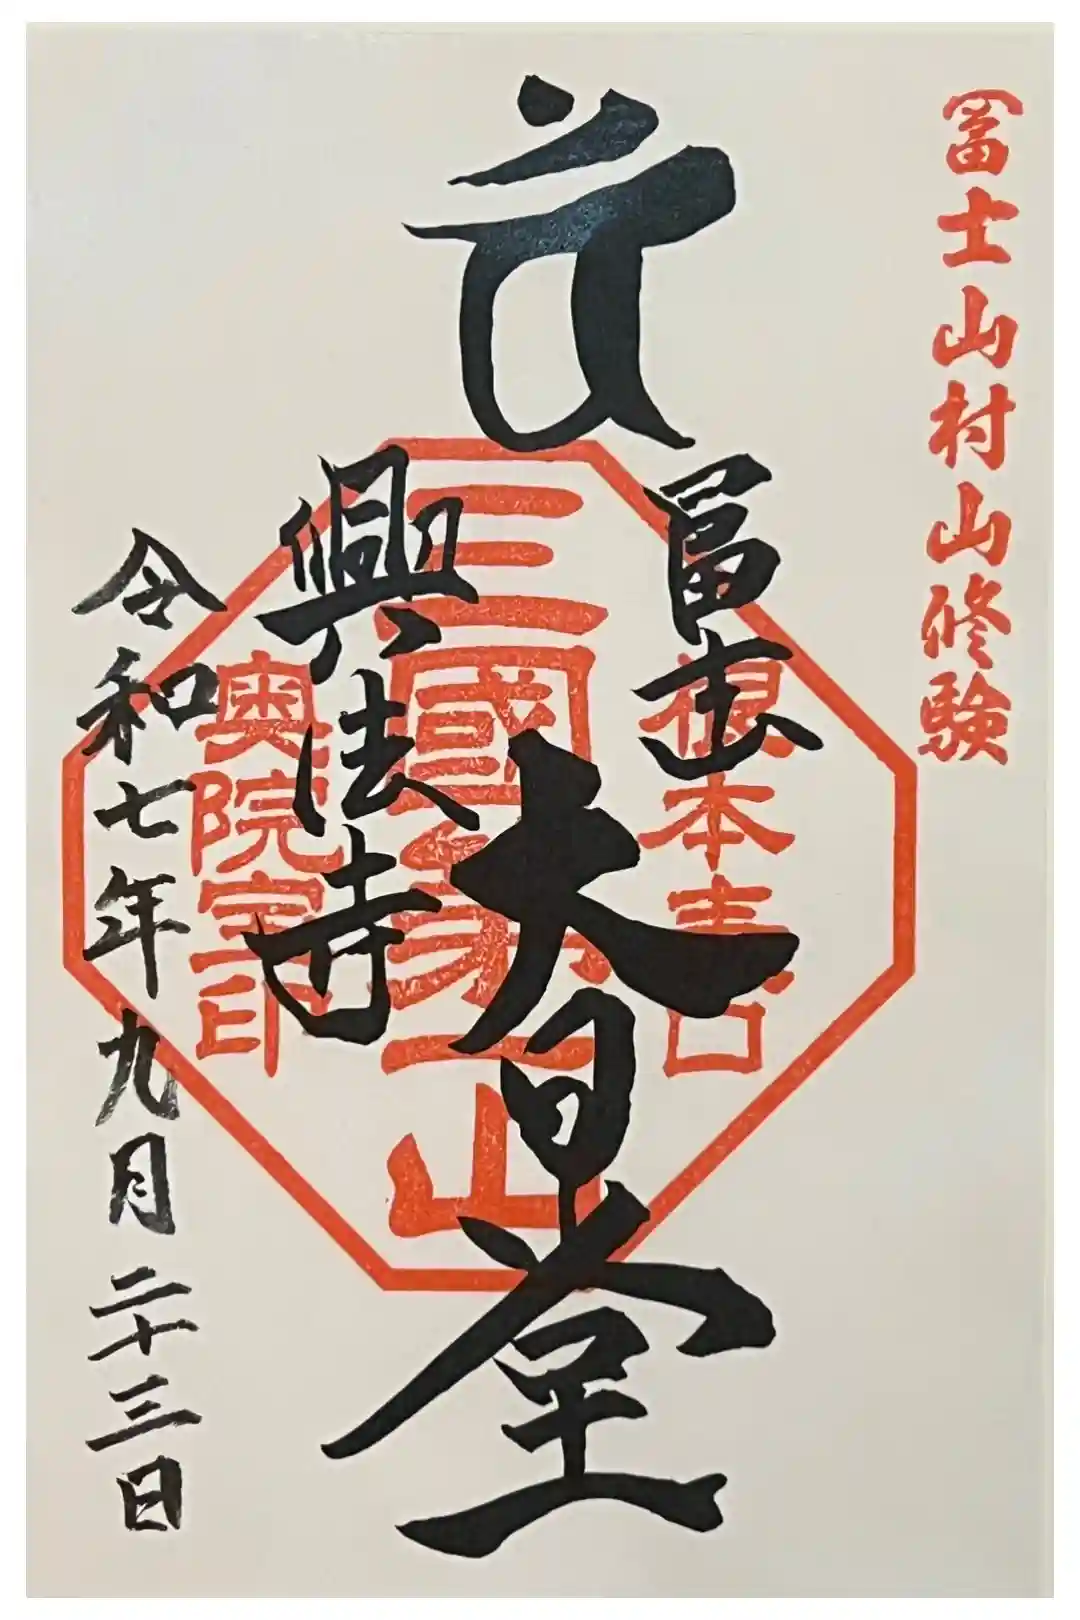 冨士山村山修験
冨士
大日堂
興法寺
令和七年九月二十三日
三國第一山
奥院宝印